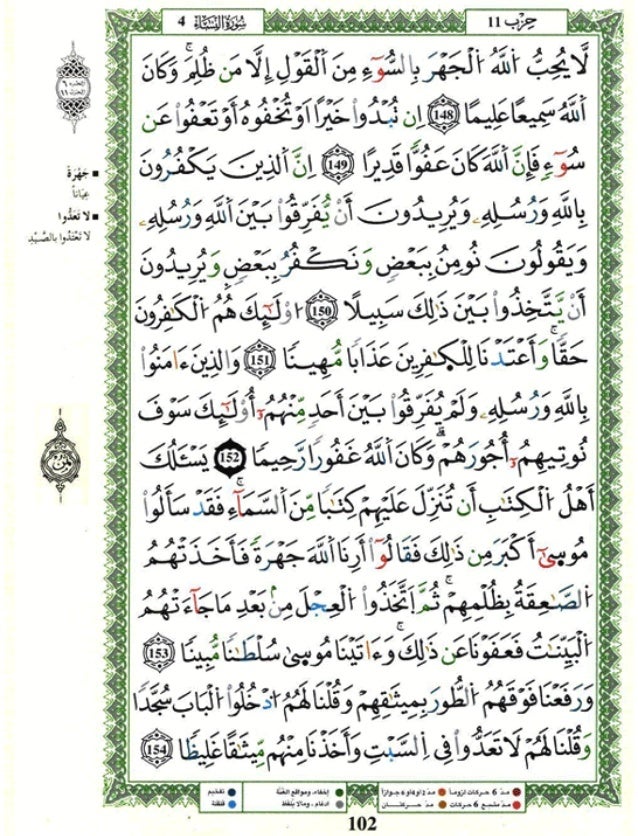 سُورَةُ النِّسَاءِ 4
حِزْب 11
لَّا يُحِبُّ اُللَّهُ اُلْجَهْرَ بِالسُّوٓءِ مِنَ اَلْقَوْلِ إِلَّا مَن ظُلِمَۖ وَكَانَ
اَللَّهُ سَمِيعاً عَلِيمًا 148 اِن تُبْدُواْ خَيْراً اَوْ تُخْفُوهُ أَوْ تَعْفُواْ عَن
سُوٓءٍ فَإِنَّ اَللَّهَ كَانَ عَفُوّاً قَدِيرًا 149 اِنَّ اَلذِينَ يَكْفُرُونَ
بِاللَّهِ وَرُسُلِهِۦ وَيُرِيدُونَ أَنْ يُّفَرِّقُواْ بَيْنَ اَللَّهِ وَرُسُلِهِۦ
وَيَقُولُونَ نُومِنُ بِبَعْضٍ وَنَكْفُرُ بِبَعْضٍ وَيُرِيدُونَ
أَنْ يَّتَّخِذُواْ بَيْنَ ذَٰلِكَ سَبِيلًا 150 اُوْلَٰٓئِكَ هُمُ اُلْكَٰفِرُونَ
حَقّاًۖ وَأَعْتَدْنَا لِلْكَٰفِرِينَ عَذَاباً مُّهِيناً 151 وَالذِينَ ءَامَنُواْ
بِاللَّهِ وَرُسُلِهِۦ وَلَمْ يُفَرِّقُواْ بَيْنَ أَحَدٍ مِّنْهُمُۥٓ أُوْلَٰٓئِكَ سَوْفَ
نُوتِيهِمُۥٓ أُجُورَهُمْۖ وَكَانَ اَللَّهُ غَفُوراً رَّحِيماً 152 يَسْـَٔلُكَ
أَهْلُ اُلْكِتَٰبِ أَن تُنَزِّلَ عَلَيْهِمْ كِتَٰباً مِّنَ اَلسَّمَآءِۖ فَقَدْ سَأَلُواْ
مُوسَىٰٓ أَكْبَرَ مِن ذَٰلِكَ فَقَالُوٓاْ أَرِنَا اَللَّهَ جَهْرَةً فَأَخَذَتْهُمُ
اُلصَّٰعِقَةُ بِظُلْمِهِمْۖ ثُمَّ اَتَّخَذُواْ اُلْعِجْلَ مِنۢ بَعْدِ مَا جَآءَتْهُمُ
اُلْبَيِّنَٰتُ فَعَفَوْنَا عَن ذَٰلِكَۖ وَءَاتَيْنَا مُوسَىٰ سُلْطَٰناً مُّبِيناً 153
وَرَفَعْنَا فَوْقَهُمُ اُلطُّورَ بِمِيثَٰقِهِمْ وَقُلْنَا لَهُمُ اُدْخُلُواْ اُلْبَابَ سُجَّداً
وَقُلْنَا لَهُمْ لَا تَعَدُّواْ فِي اِلسَّبْتِ وَأَخَذْنَا مِنْهُم مِّيثَٰقاً غَلِيظاً 154
■ جَهْرَةً
عِيَاناً
■ لَا تَعَدُّوا
لا تَعْتَدُوا بالصَّيْدِ
مدّ 6 حركات لزوماً ● مدّ 2 أو 4 أو 6 جوازاً ● إخفاء، ومواقع الغنّة ● تفخيم
مدّ مشبع 6 حركات ● مدّ حركتان ● ادغام، وما لا يُلفظ ● قلقلة
102